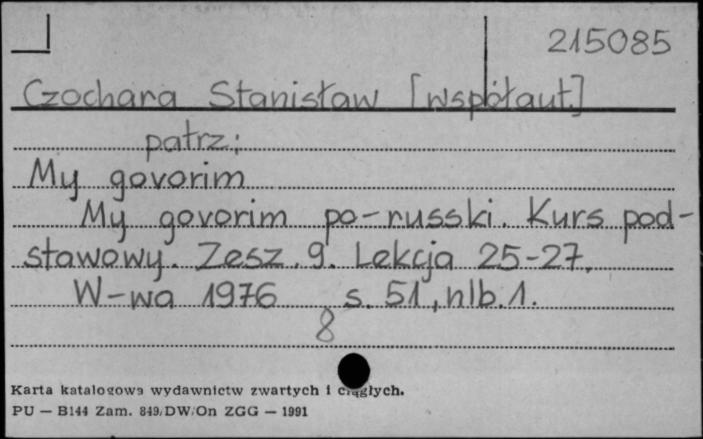 215085
Czochara Stanisław [współaut.]
patrz:
My govorim
My govorim po-russki. Kurs pod-
stawowy. Zesz. 9. Lekcja 25-27.
W-wa 1976 s. 51, nlb. 1.
8
Karta katalogowa wydawnictw zwartych i ciągłych.
PU — B144 Zam. 849/DW/On ZGG — 1991